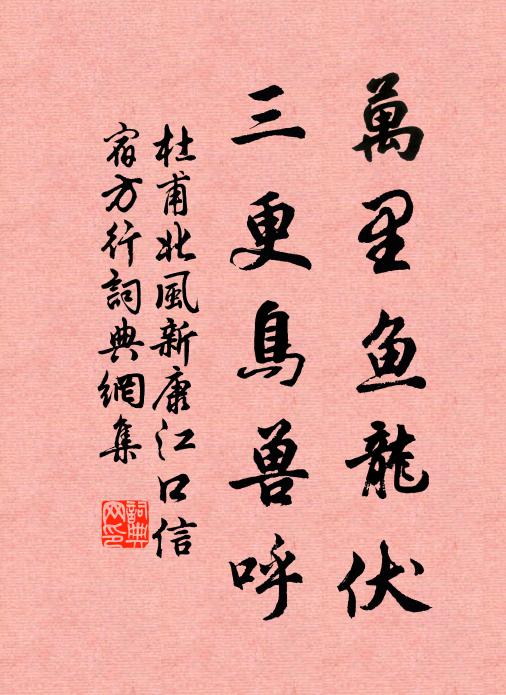 萬里鱼龍伏
三更鳥兽呼
杜甫北風新康江口信
宿方行詞典網集
詞典
网印